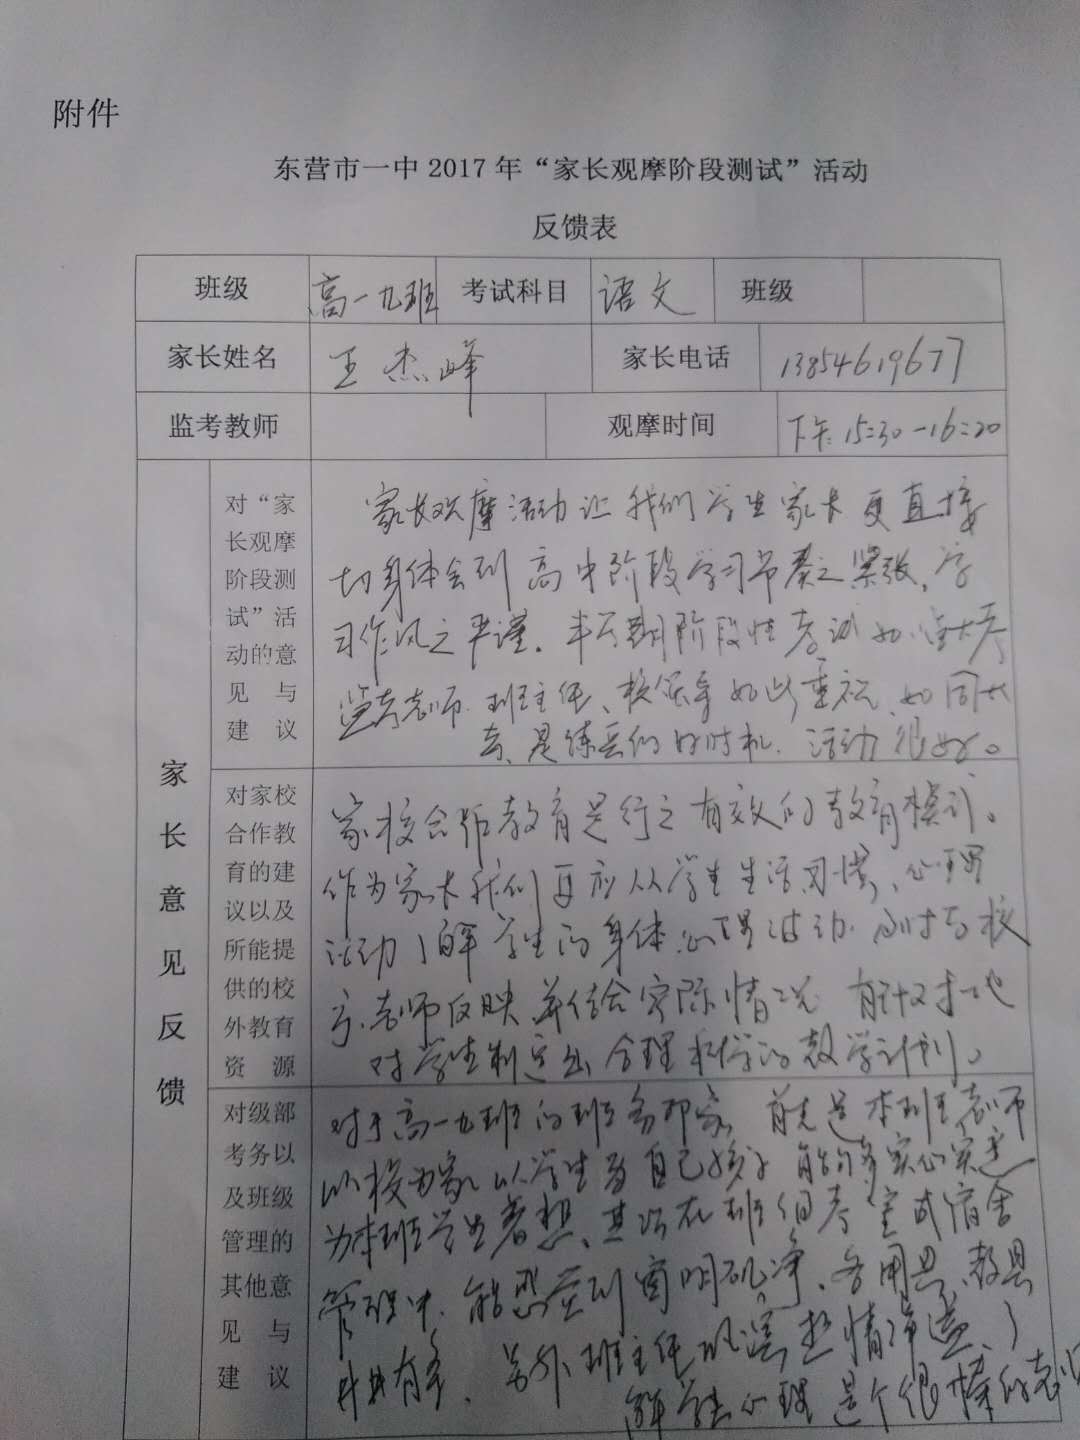 附件
东营市一中 2017 年“家长观摩阶段测试”活动
反馈表
班级 高一九班 考试科目 语文 班级
家长姓名 王杰峰 家长电话 13854619677
监考教师 观摩时间 下午:15:30-16:20
家长意见反馈
对“家
长观摩
阶段测
试”活
动的意
见 与
建 议
家长观摩活动让我们学生家长更直接
切身体会到高中阶段学习节奏之紧张,学
习作风之严谨。半天期阶段性考试如
监考老师.班主任、校领导如此重视、如同大
考、是练兵的好时机.活动很好。
对家校
合作教
育的建
议以及
所能提
供的校
外教育
资 源
家校合作教育是行之有效的教育模式。
作为家长我们更应从学生生活习惯、心理
活动了解学生的身体心理波动.及时与校
方.老师反映并结合实际情况 有针对性地
对学生制定出合理科学的教学计划。
对级部
考务以
及班级
管理的
其他意
见 与
建 议
对于高一九班的班务 首先是本班老师
以校为家以学生为自己孩子 能够实心实意
为本班学生着想、其次在班级考室或宿舍
管理中.能感受到窗明几净、各用具、教具
井井有条.另外班主任 热情洋溢、了
解学生心理 是个很棒的老师